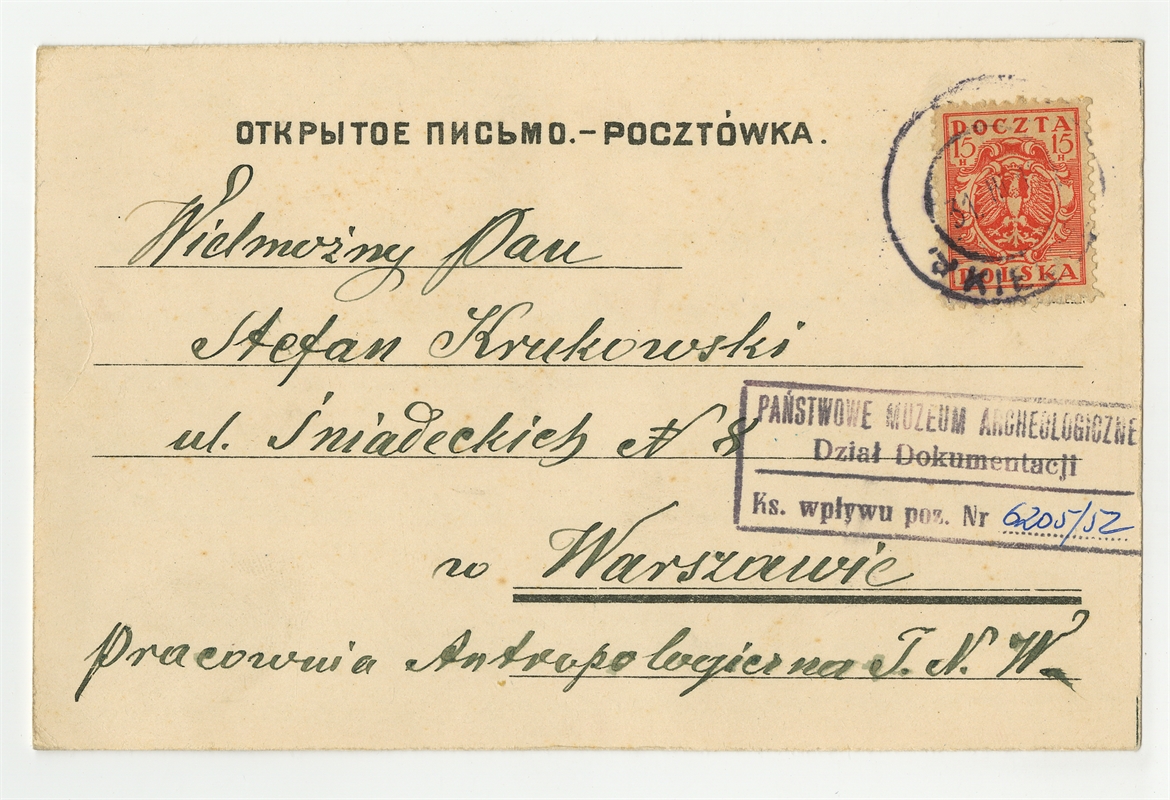 ОТКРЫТОЕ ПИСЬМО.–POCZTÓWKA.
POCZTA
15 15
H H
POLSKA
Wielmożny Pan
Stefan Krukowski
ul. Śniadeckich N 8
PAŃSTWOWE MUZEUM ARCHEOLOGICZNE
Dział Dokumentacji
Ks. wpływu poz. Nr 6205/52
w Warszawie
Pracownia Antropologiczna T. N. W.